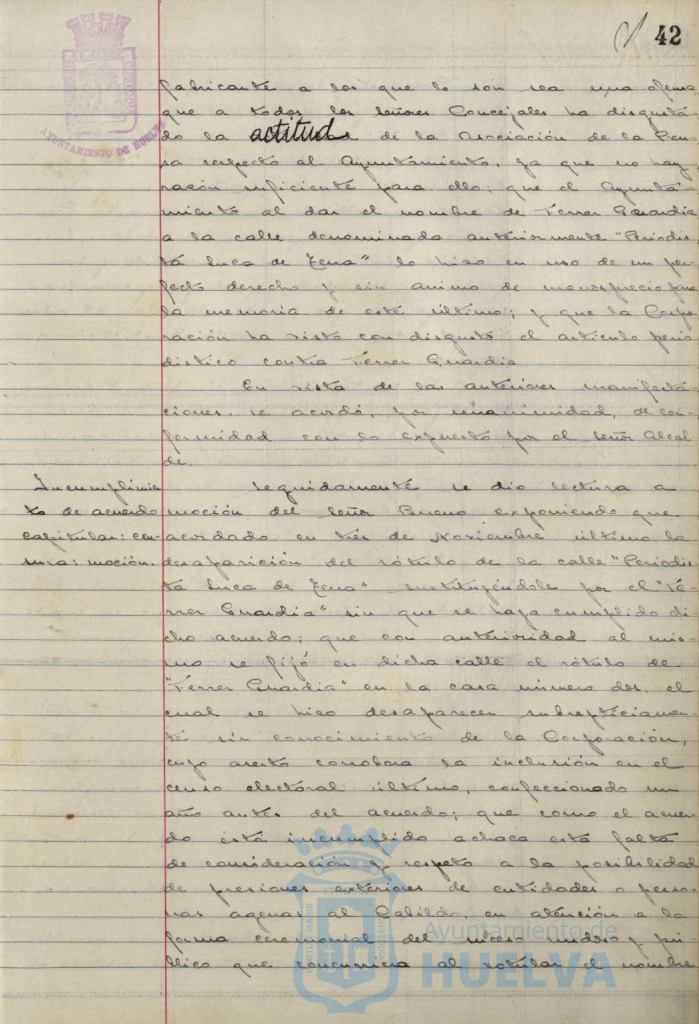 42
AYUNTAMIENTO DE HUELVA
fabricante a los que lo son sea una ofensa
que a todos los señores Concejales ha disgusta
do la actitud de la Asociación de la Pren
sa respecto al Ayuntamiento, ya que no hay
razón suficiente para ello; que el Ayunta
miento al dar el nombre de Ferrer Guardia
a la calle denominada anteriormente "Periodis
ta Luca de Tena" lo hizo en uso de un per
fecto derecho y sin animo de menosprecio para
la memoria de este último; y que la Corpo
ración ha visto con disgusto el artículo perio
distico contra Ferrer Guardia
En vista de las anteriores manifesta
ciones, se acordó, por unanimidad, de con
formidad con lo expuesto por el señor Alcal
de.
Incumplimien
to de acuerdo
capitular: cen
sura: moción.
Seguidamente se dio lectura a
moción del señor Bueno exponiendo que
acordado en tres de Noviembre último la
desaparición del rótulo de la calle "Periodis
ta Luca de Tena" sustituyéndole por el "Fe
rrer Guardia" sin que se haya cumplido di
cho acuerdo; que con anterioridad al mis
mo se fijó en dicha calle el rótulo de
"Ferrer Guardia" en la casa número dos, el
cual se hizo desaparecer subrepticiamen
te sin conocimiento de la Corporación,
cuyo aserto corrobora la inclusión en el
censo electoral último, confeccionado un
año antes del acuerdo; que como el acuer
do está incumplido achaca esta falta
de consideración y respeto a la posibilidad
de presiones exteriores de entidades o perso
nas agenas al Cabildo, en atención a la
forma ceremonial del y pú
blico que concurriera al rotular el nombre
Ayuntamiento de
HUELVA